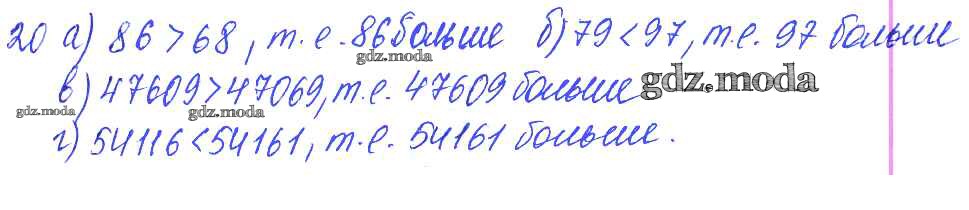 20 а) 86 > 68, т.е. 86 больше б) 79 < 97, т.е. 97 больше
gdz.moda
в) 47609 > 47069, т.е. 47609 больше gdz.moda
gdz.moda gdz.moda
г) 54116 < 54161, т.е. 54161 больше.